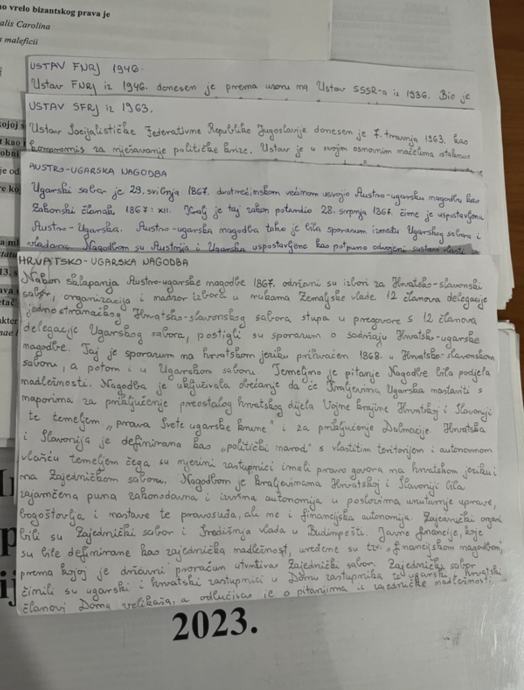 no vrelo bizantskog prava je
alis Carolina
maleficii
USTAV FNRJ 1946.
Ustav FNRJ iz 1946. donesen je prema uzoru na Ustav SSSR-a iz 1936. Bio je
USTAV SFRJ IZ 1963.
Ustav Socijalističke Federativne Republike Jugoslavije donesen je 7. travnja 1963. kao
kompromis za rješavanje političke krize. Ustav je u svojim osnovnim načelima
AUSTRO-UGARSKA NAGODBA
Ugarski sabor je 29. 1867. dvotrećinskom većinom usvojio Austro-ugarsku nagodbu kao
Zakonski članak 1867: XII. Kralj je taj zakon potvrdio 28. srpnja 1867. čime je uspostavljena
Austro-Ugarska. Austro-ugarska nagodba tako je bila sporazum između Ugarskog sabora i
vladara. Nagodbom su Austrija i Ugarska uspostavljene kao potpuno odvojeni
HRVATSKO-UGARSKA NAGODBA
Nakon sklapanja Austro-ugarske nagodbe 1867. održani su izbori za Hrvatsko-slavonski
sabor, organizacija i nadzor izbora u rukama Zemaljske vlade. 12 članova delegacije
jednostranačkog Hrvatsko-slavonskog sabora stupa u pregovore s 12 članova
delegacije Ugarskog sabora, postigli su sporazum o sadržaju Hrvatsko-ugarske
nagodbe. Taj je sporazum na hrvatskom jeziku prihvaćen 1868. u Hrvatsko-slavonskom
saboru, a potom i u Ugarskom saboru. Temeljno je pitanje Nagodbe bila podjela
nadležnosti. Nagodba je uključivala obećanje da će Kraljevina Ugarska nastaviti s
naporima za priključenje preostalog hrvatskog dijela Vojne krajine Hrvatskoj i Slavoniji
te temeljem „prava Svete ugarske krune" i za priključenje Dalmacije. Hrvatska
i Slavonija je definirana kao „politički narod" s vlastitim teritorijem i autonomnom
vlašću temeljem čega su njezini zastupnici imali pravo govora na hrvatskom jeziku i
na Zajedničkom saboru. Nagodbom je Kraljevinama Hrvatskoj i Slavoniji bila
zajamčena puna zakonodavna i izvršna autonomija u poslovima unutarnje uprave,
bogoštovlja i nastave te pravosuđa, ali ne i financijska autonomija. Zajednički organi
bili su Zajednički sabor i Središnja vlada u Budimpešti. Javne financije, koje
su bile definirane kao zajednička nadležnost, uređene su tzv. „financijskom nagodbom"
prema kojoj je državni proračun utvrđivao Zajednički sabor. Zajednički sabor
činili su ugarski i hrvatski zastupnici u Domu zastupnika te ugarski i hrvatski
članovi Doma velikaša, a odlučivao je o pitanjima iz zajedničke nadležnosti.
2023.